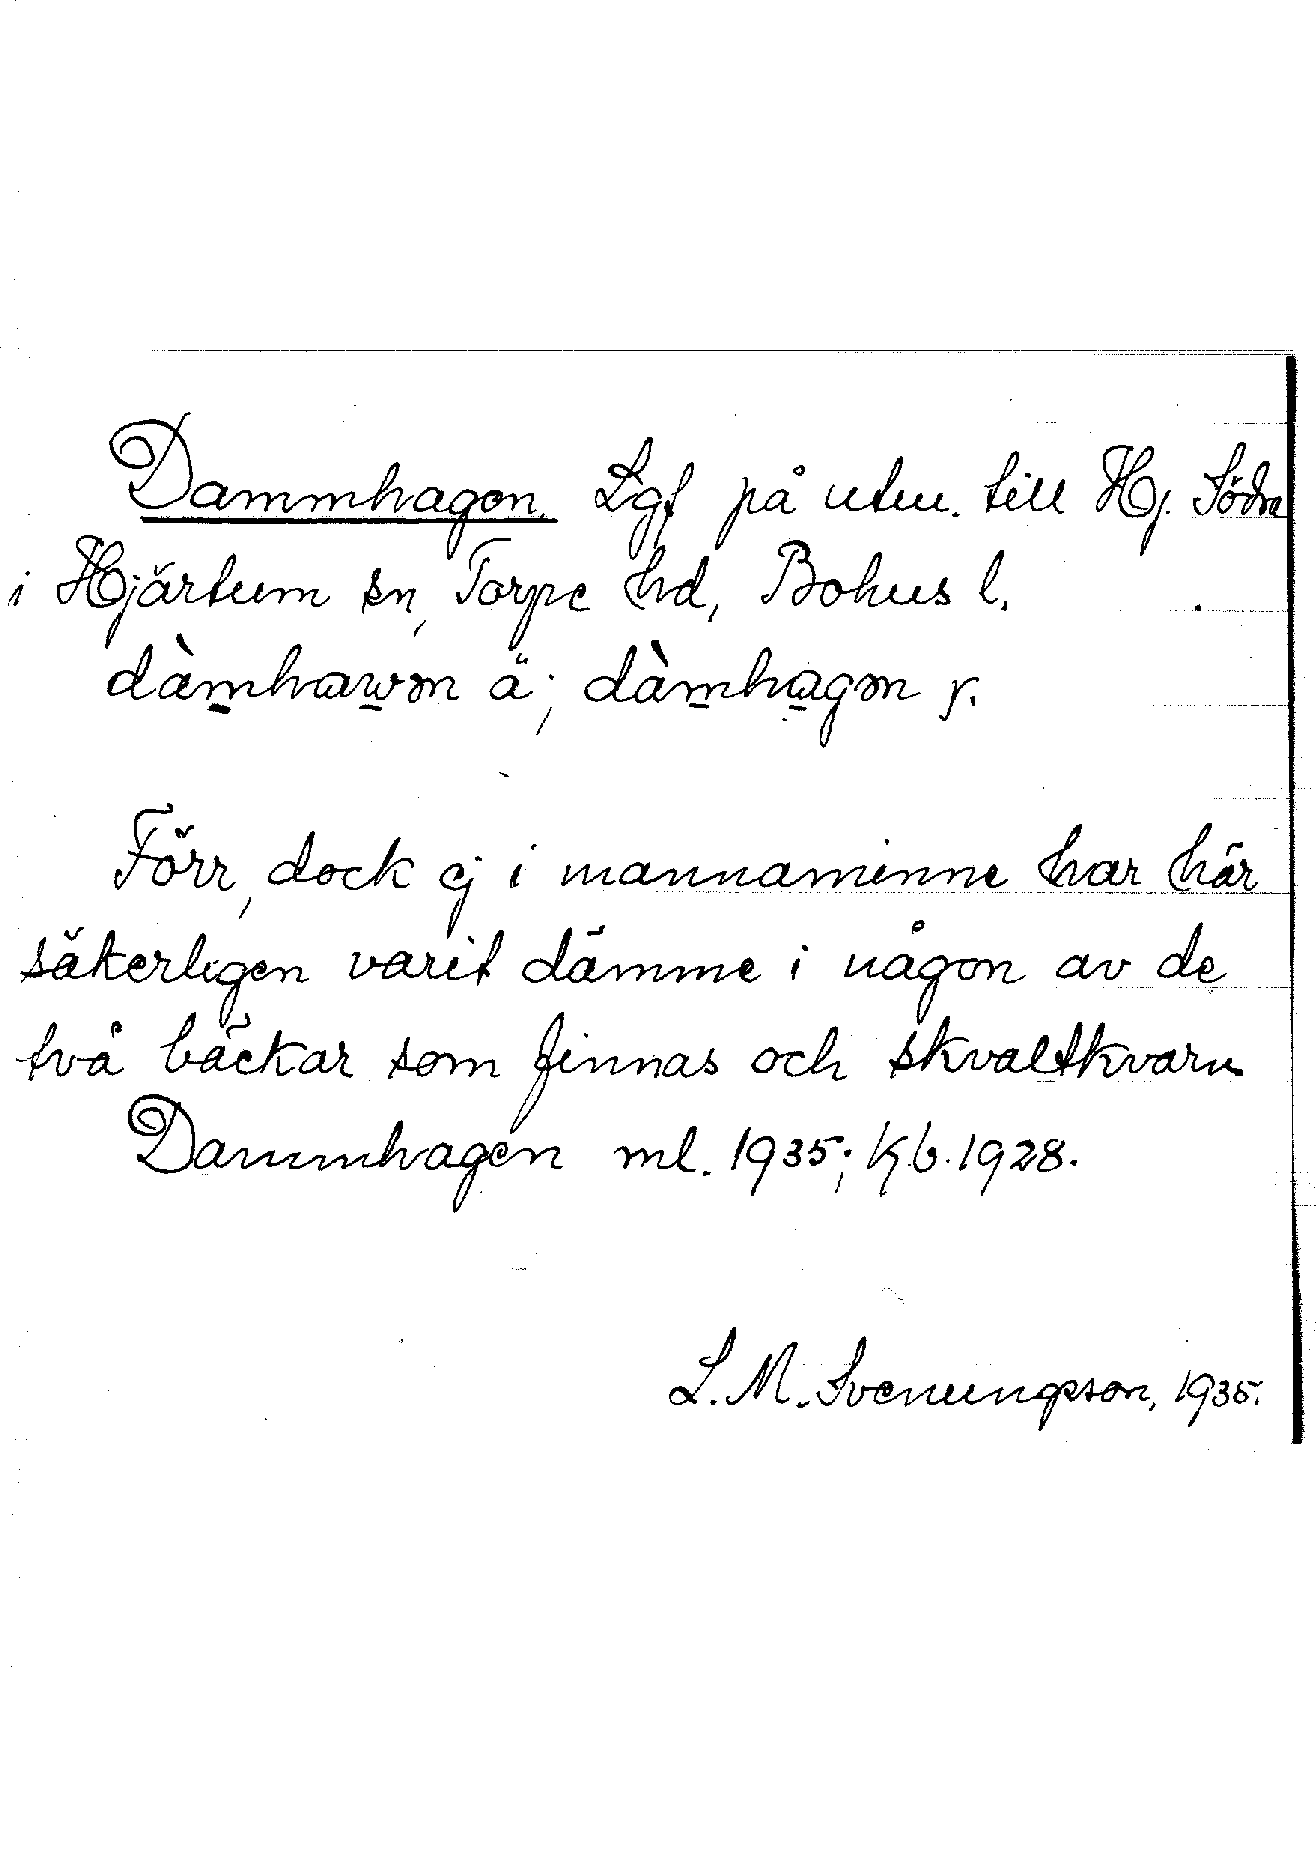 Dammhagen. Lgf på utm. till Hj. Södra
i Hjärtum sn, Torpe hd, Bohus l.
dàmhawən ä; dàmhagən y.
Förr, dock ej i mannaminne har här
säkerligen varit dämme i någon av de
två bäckar som finnas och skvaltkvarn
Dammhagen ml. 1935; Kb. 1928.
L. M. Svenungsson, 1935.